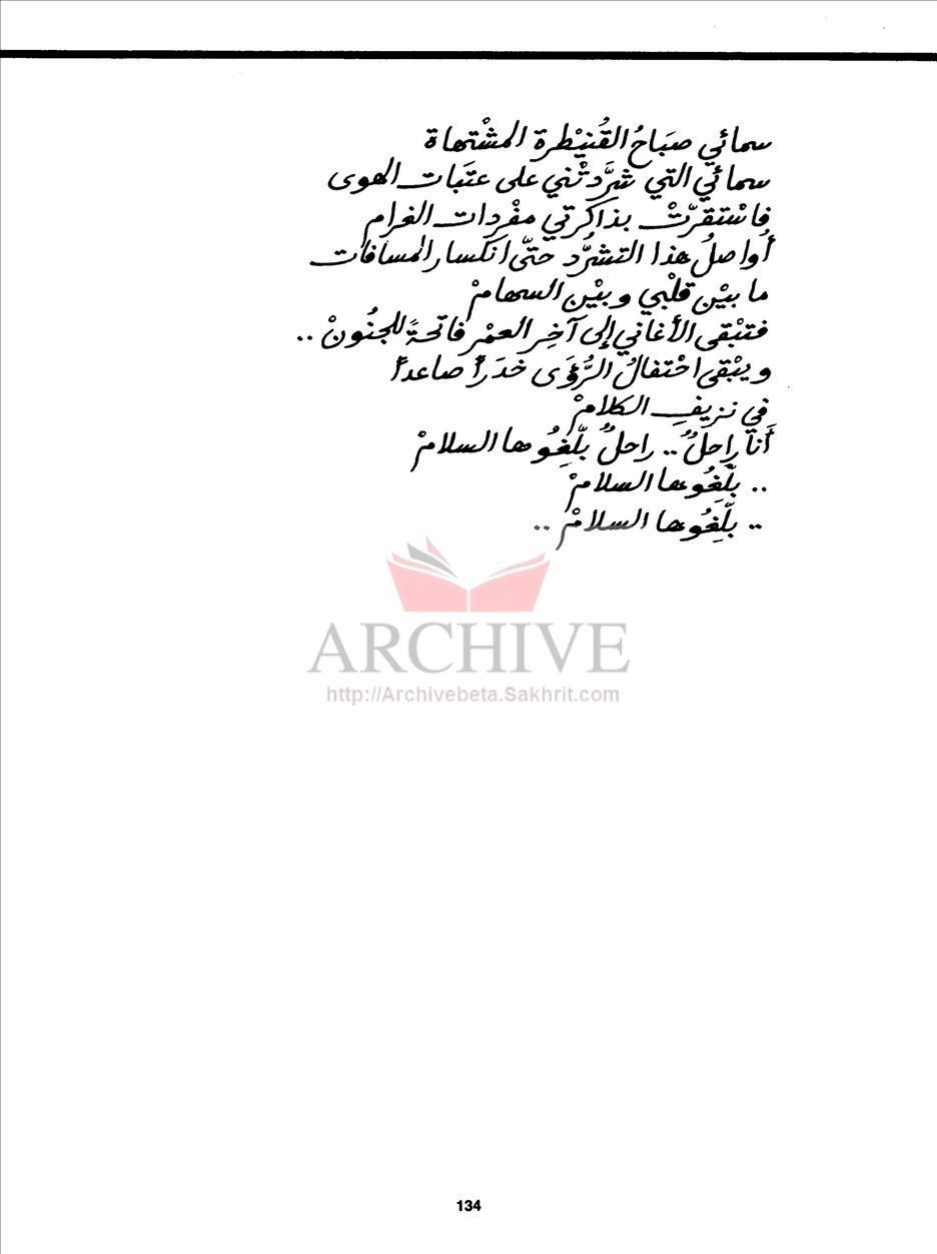 سمائي صبَاحُ القُنيْطرة المشْتهاة
سمائي التي شرَّدتْني على عتَبات الهوى
فاسْتقرّتْ بذاكرتي مفْردات الغرام
أُواصلُ هذا التشرُّد حتّى انكسار المسافات
ما بيْن قلْبي وبيْن السهامْ
فتبْقى الأغاني إلى آخِر العمْر فاتحةً للجنُونْ ..
ويبْقى احْتفالُ الرُّؤَى خدَراً صاعداً
في نزيفِ الكلامْ
أَنا راحلٌ .. راحلٌ بلّغُوها السلامْ
.. بلّغُوها السلامْ
.. بلّغُوها السلامْ ..
ARCHIVE
http://Archivebeta.Sakhrit.com
134